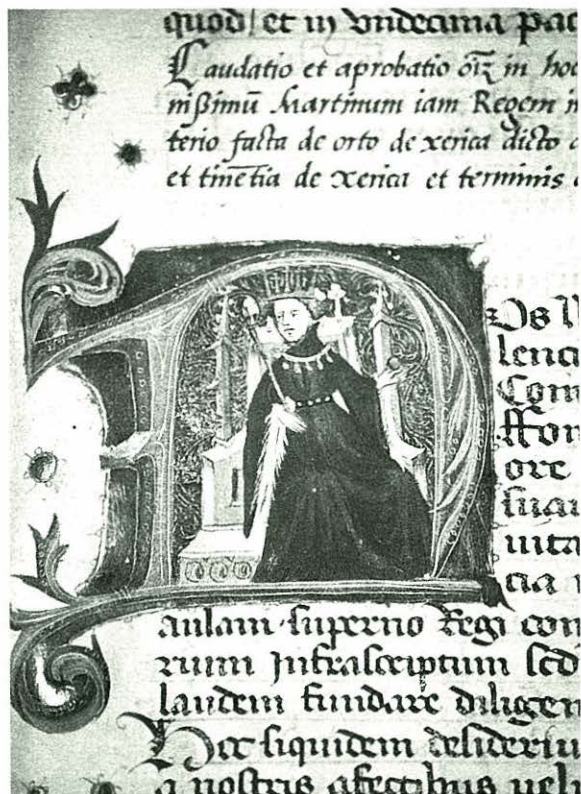 quod et in vndecima pac
Laudatio et aprobatio oīz in hoc
nißimū Martinum iam Regem i
terio facta de orto de xerica dicto
et tinētia de xerica et terminis
os ll
lenci
Com
ffor
ore
sua
uita
cia
aulam superno Regi con
rium Infrascriptum sed
laudem fundare diligen
Hec siquidem desideriu
a nostris afectibus veli